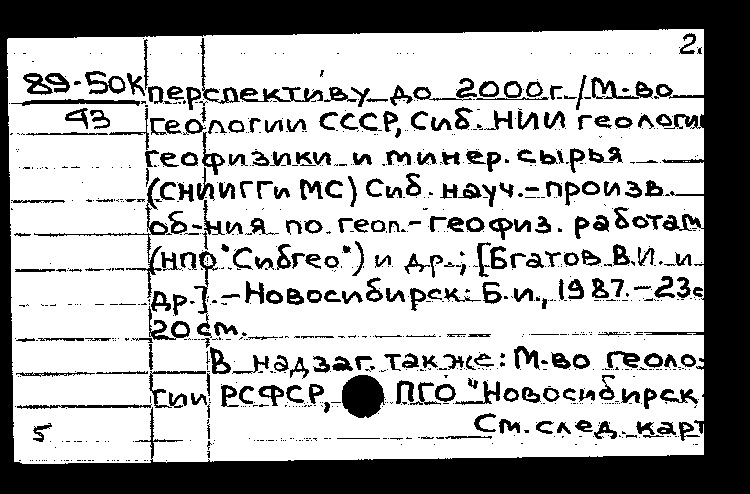 2.
89-50К перспективу до 2000г. /М-во
93 геологии СССР, Сиб. НИИ геологии
геофизики и минер. сырья
(СНИИГГиМС) Сиб. науч.-произв.
об-ния по геол.-геофиз. работам
(НПО "Сибгео") и др.; [Бгатов В.И. и
др.]. - Новосибирск: Б.и., 1987. - 23с
20 см.
В надзаг. также: М-во геоло-
гии РСФСР, ПГО "Новосибирск-
5 См. след. карт